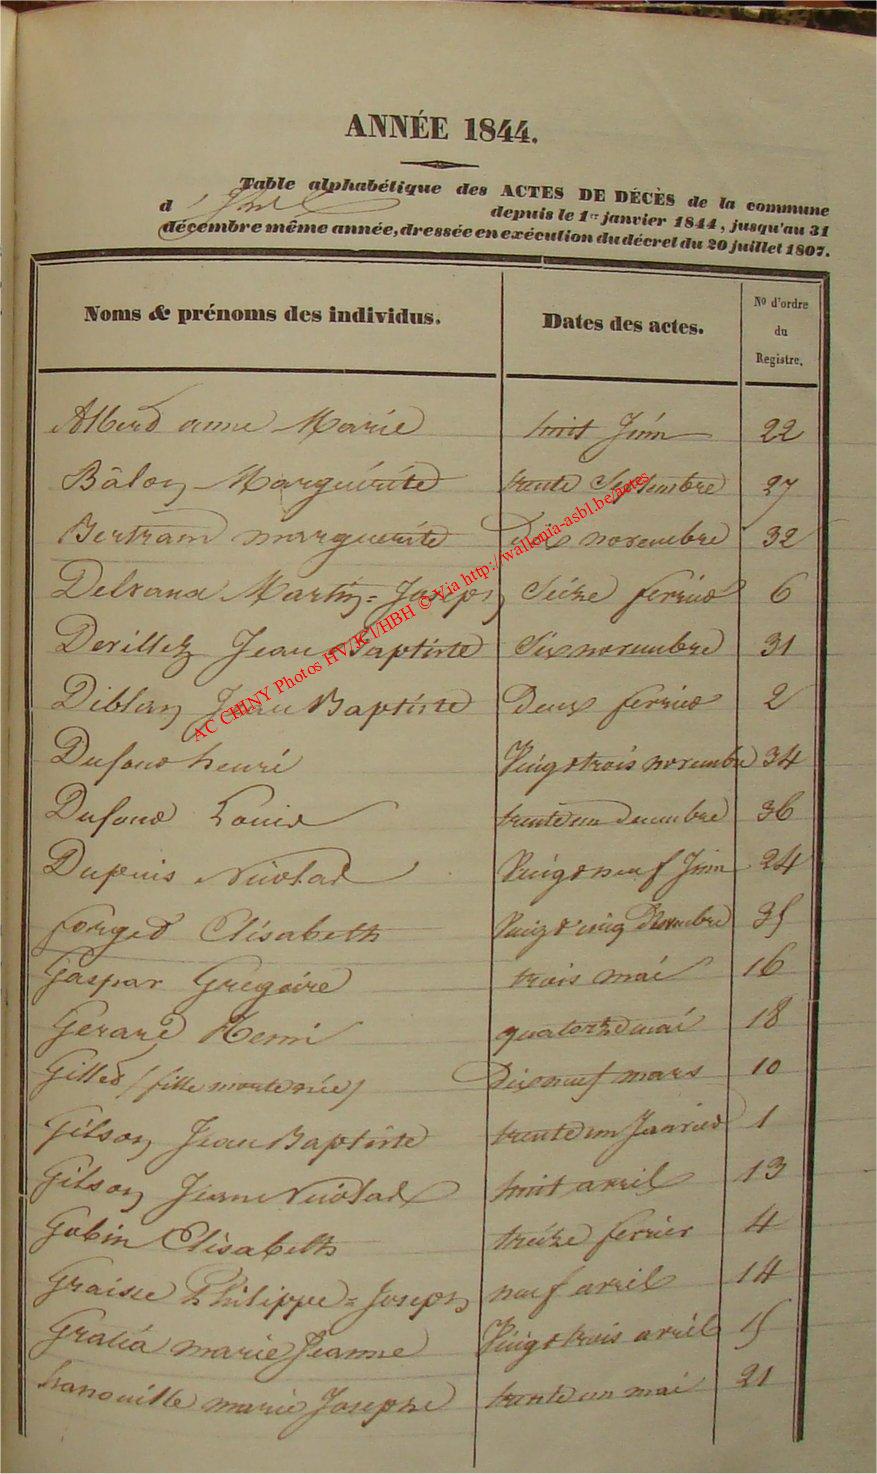 ANNÉE 1844.
Table alphabétique des ACTES DE DÉCÈS de la commune
d' depuis le 1er janvier 1844, jusqu'au 31
décembre même année, dressée en exécution du décret du 20 juillet 1807.
Noms & prénoms des individus. Dates des actes. No d'ordre
du
Registre.
Albert anne Marie huit Juin 22
Bâlon Marguérite trente Septembre 27
Bertrand marguerite Dix novembre 32
Delvaux Martin-Joseph Seize fevrier 6
Devillez Jean Baptiste Six novembre 31
Diblan Jean Baptiste Deux fevrier 2
Dufour henri Vingt trois novembre 34
Dufour Louis trente un Decembre 36
Dupuis Nicolas Vingt neuf Juin 24
forget Elisabeth Vingt cinq Décembre 35
Gaspar Gregoire trois mai 16
Gerard Remi quatorze mai 18
Gilles (fille morte née) Dix neuf mars 10
Gilson Jean Baptiste trente un Janvier 1
Gilson Jean Nicolas huit avril 13
Gobin Elisabeth treize fevrier 4
Graisse Philippe-Joseph neuf avril 14
Gratia marie Jeanne Vingt trois avril 15
hanouille marie Josephe trente un mai 21
AC CHINY Photos HV/K1/HBH © Via http://wallonia-asbl.be/actes